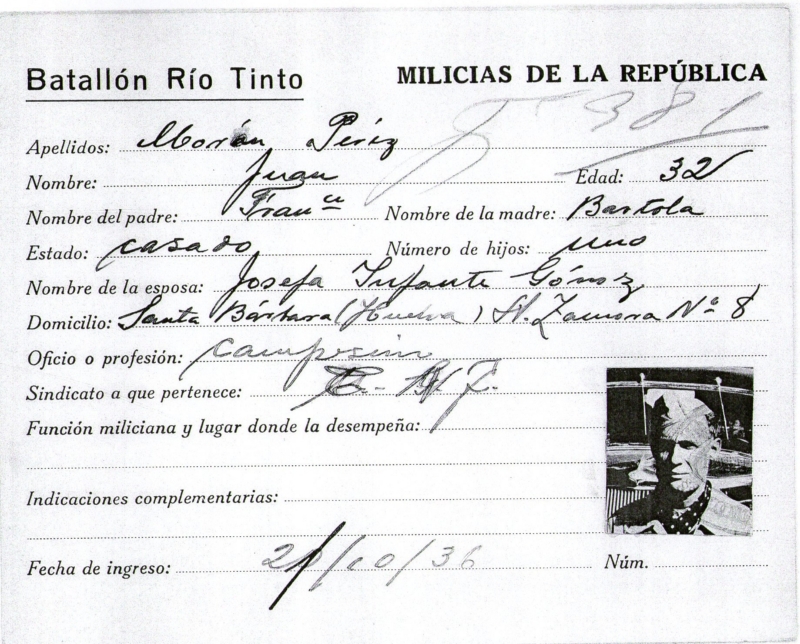 Batallón Río Tinto MILICIAS DE LA REPÚBLICA
381
Apellidos: Morán Périz
Nombre: Juan Edad: 32
Nombre del padre: Franco Nombre de la madre: Bartola
Estado: casado Número de hijos: uno
Nombre de la esposa: Josefa Infante Gómez
Domicilio: Santa Bárbara (Huelva) Zamora Nº 8
Oficio o profesión: campesino
Sindicato a que pertenece:
Función miliciana y lugar donde la desempeña:
Indicaciones complementarias:
Fecha de ingreso: /10/36 Núm.